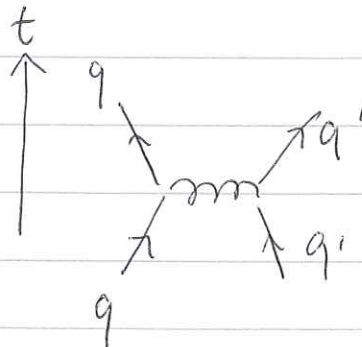 t
q q'
q q'